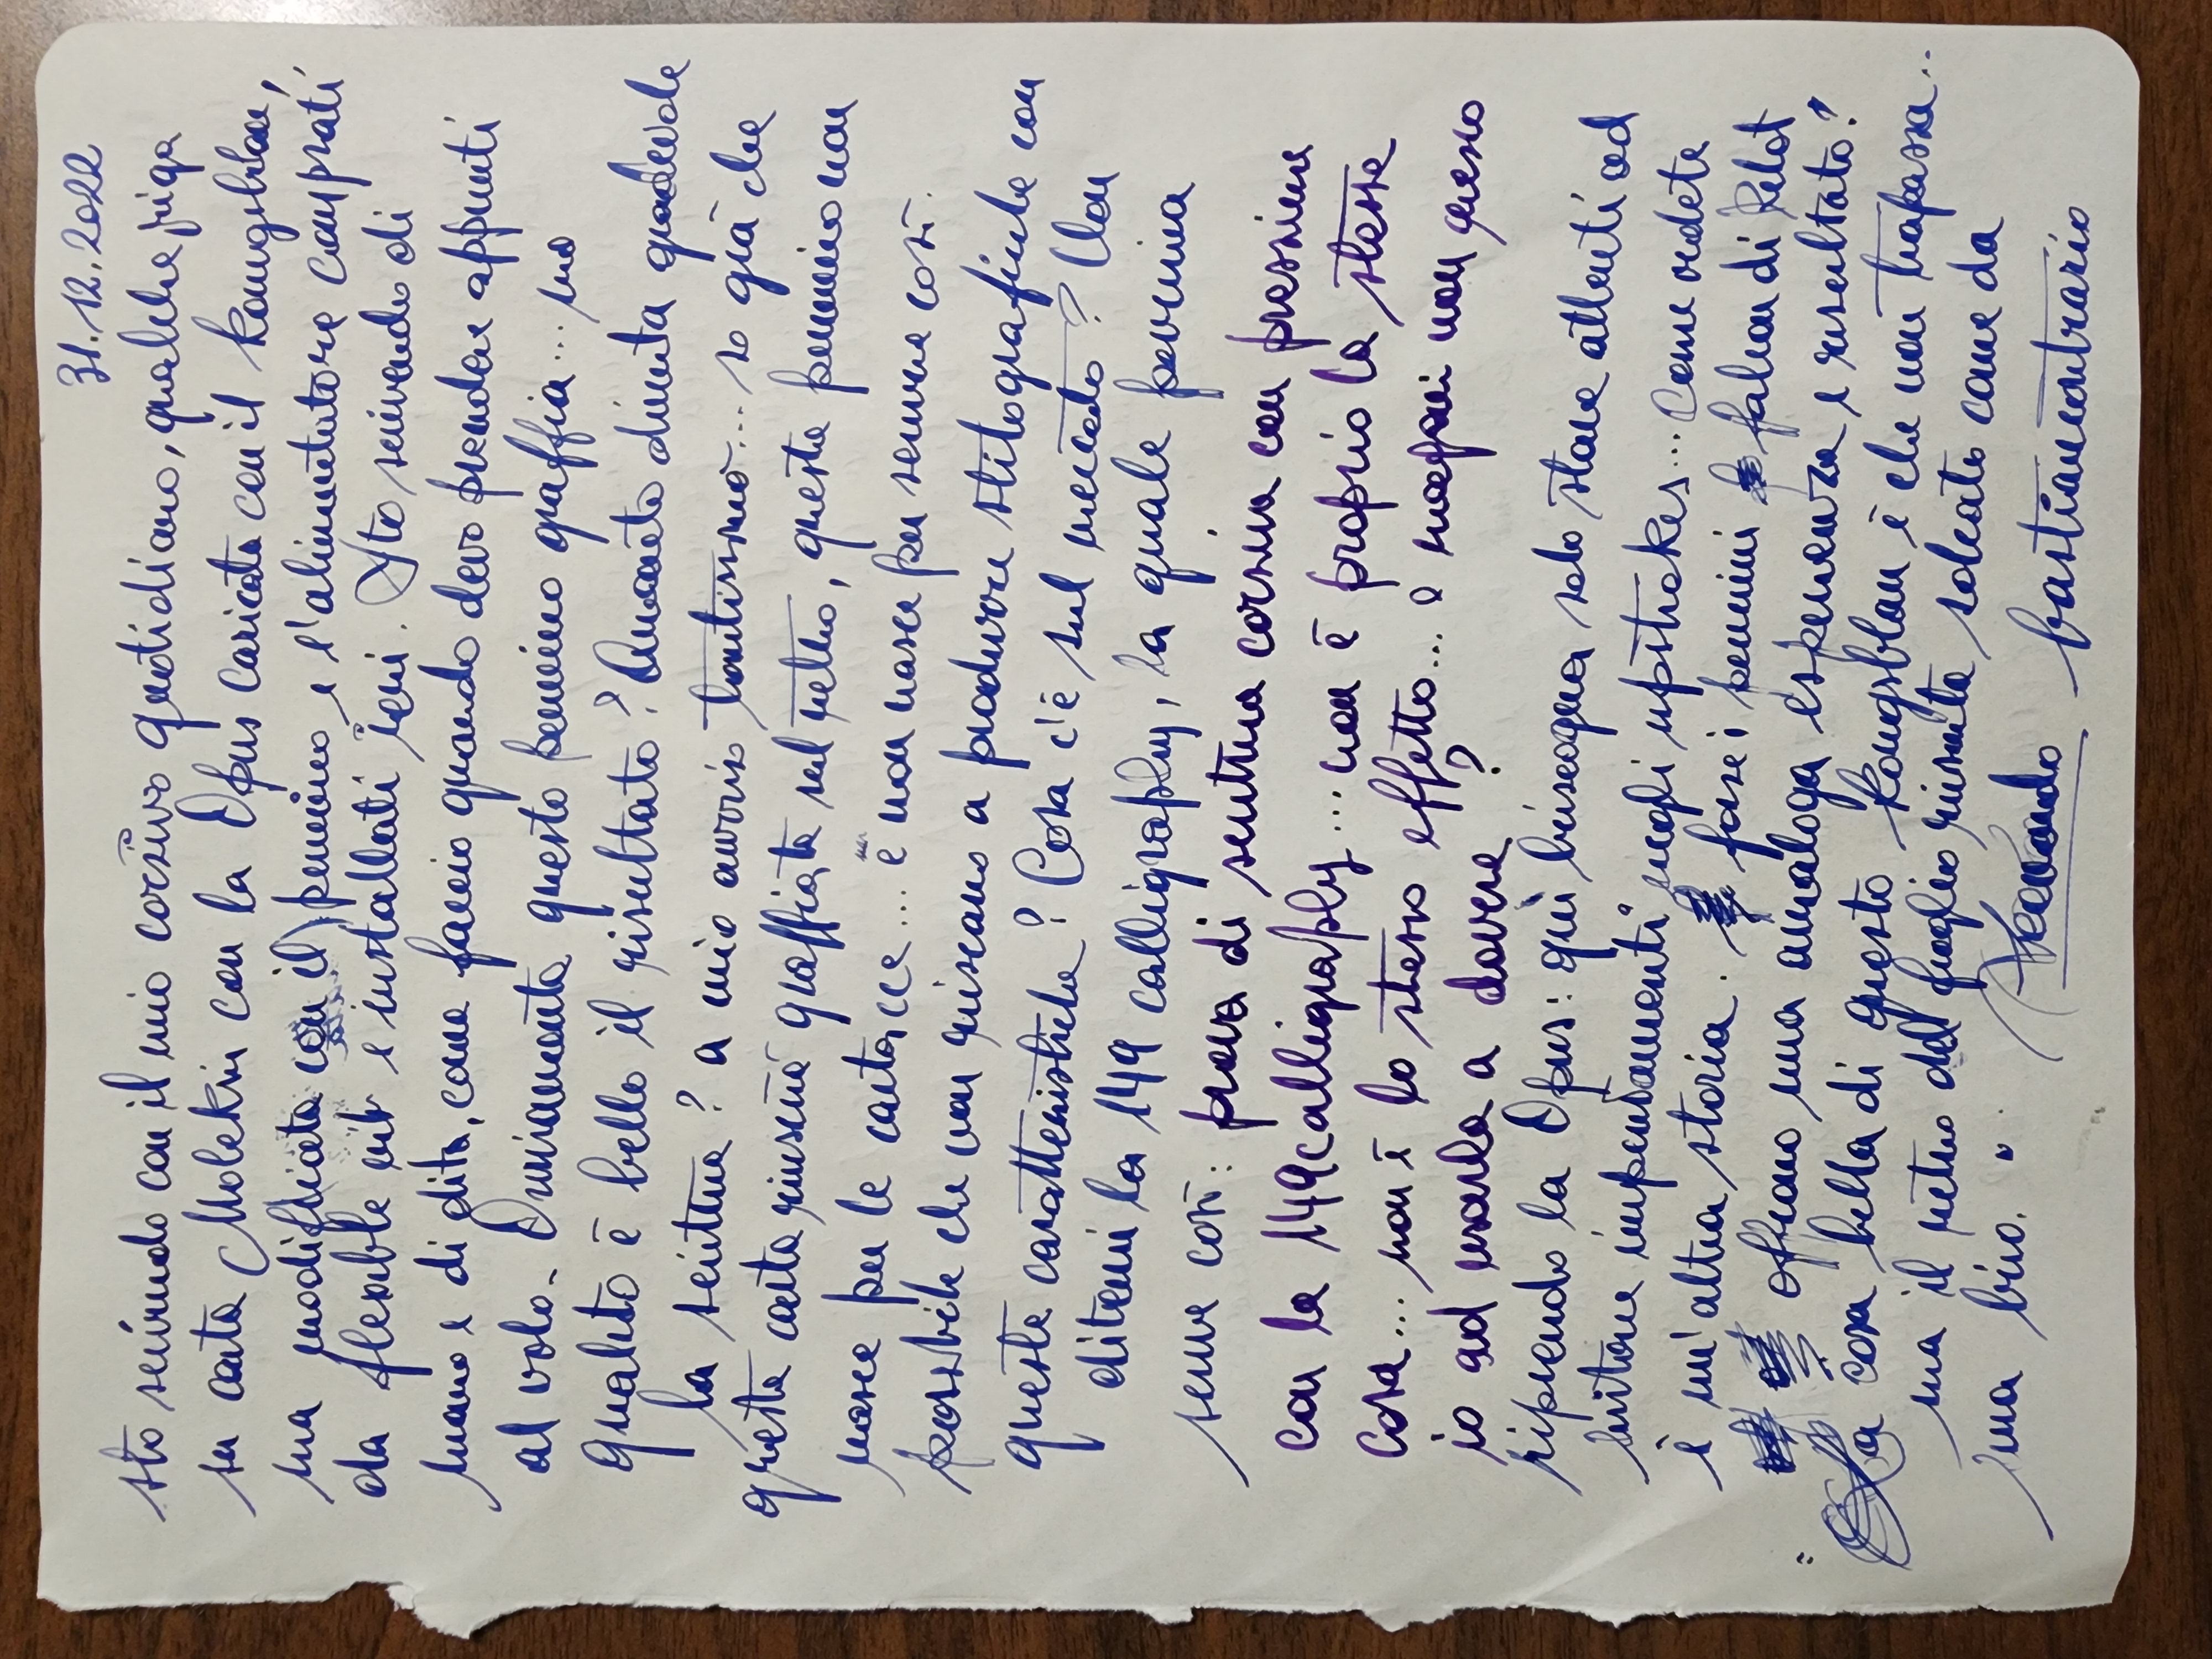 31.12.2022
sto scrivendo con il mio corsivo quotidiano, qualche riga
su carta Moleskin con la Opus caricata con il kaungblau,
ma modificata con il pennino e l'alimentatore comprati
da flexible nib e installati ieri. Sto scrivendo di
mano e di dita, come faccio quando devo prendere appunti
al volo. Ovviamente questo pennino graffia.... ma
guardato è bello il risultato? Quanto diventa gradevole
la scrittura? a mio avviso tantissimo.... so già che
questa carta rimarrà graffiata sul retro, questo pennino non
nasce per le cartacce.... e non nasce per scrivere così.
possibile che non riescano a produrre stilografiche con
queste caratteristiche? Cosa c'è sul mercato? Non
citatemi la 149 calligraphy, la quale perviena
scrive così: prova di scrittura corsiva con pressione
con la 149 calligraphy.... non è proprio la stessa
cosa.... non è lo stesso effetto.... o neppure non riesco
io ad usarla a dovere?
riprendo la Opus: qui bisogna solo stare attenti ad
evitare impuntamenti negli upstrokes.... come vedete
è un'altra storia. forse i pennini falcon di Pilot
offrono una analoga esperienza e risultato?
"La cosa bella di questo kaungblau è che non trapassa..
ma il retro del foglio risulta solcato come da
una biro. "
Alessandro bastiancontrario